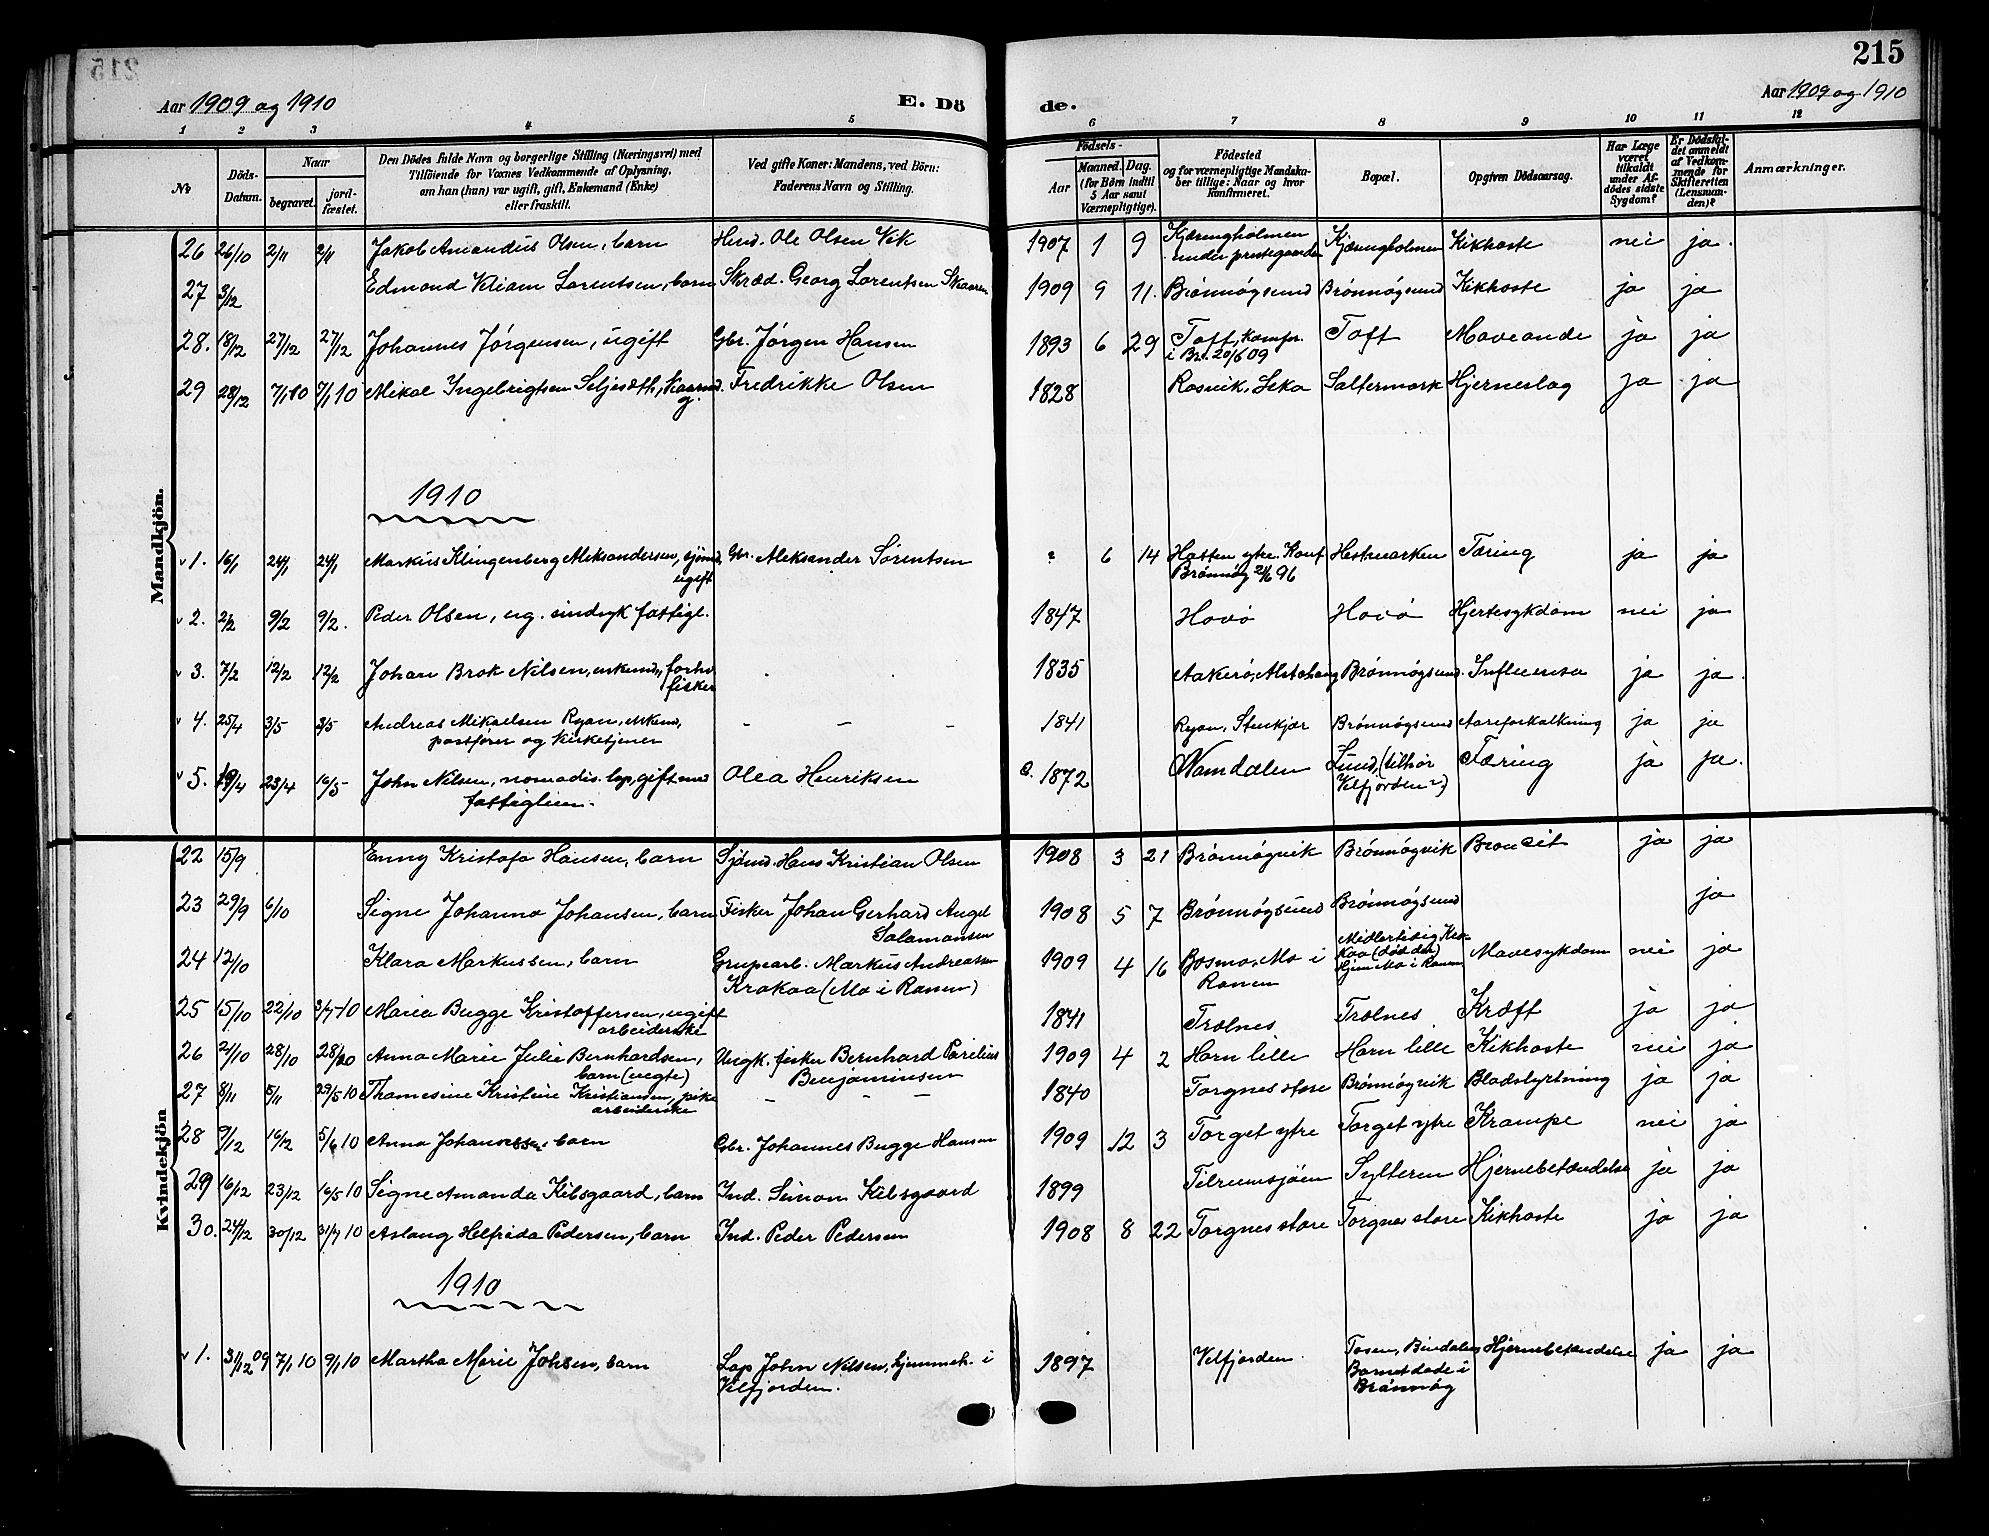 215
Aar 1909 og 1910
E. Dö
de.
Aar 1909 og 1910
1 2 3 4 5 6 7 8 9 10 11 12
No
Döds-Datum.
Naar
begravet.
jord-fæstet.
Den Dödes fulde Navn og borgerlige Stilling (Næringsvei) med
Tilföiende for Voxnes Vedkommende af Oplysning,
om han (hun) var ugift, gift, Enkemand (Enke)
eller fraskilt.
Ved gifte Koner: Mandens, ved Börn:
Faderens Navn og Stilling.
Födsels-
Aar
Maaned. Dag.
(for Börn indtil
5 Aar samt
Værnepligtige).
Födested
og for værnepligtige Mandska-
ber tillige: Naar og hvor
konfirmeret.
Bopæl.
Opgiven Dödsaarsag.
Har Læge
været
tilkaldt
under Af-
dödes sidste
Sygdom?
Er Dödsfal-
det anmeldt
af Vedkom-
mende for
Skifteretten
(Lensman-
den)?
Anmærkninger.
Mandkjön.
26 26/10 2/11 2/11 Jakob Amandus Olsen, barn Hmd. Ole Olsen Vik 1907 1 9 Kjæringholmen under prestegaarden Kjæringholmen Kikhoste nei ja.
27 3/12 Edmond Viliam Lorentsen, barn Skræd. Georg Lorentsen Skaaren 1909 9 11. Brønnøysund Brønnøysund Kikhoste ja ja
28. 18/12 27/12 27/12 Johannes Jørgensen, ugift Gbr. Jørgen Hansen 1893 6 29 Toft, Konfir. i Br. 20/6 09 Toft Maveonde ja ja
29 28/12 7/1 10 7/1 10 Mikal Ingebrigtsen Seljesæth, Kaarmd. g. Fredrikke Olsen 1828 Rosvik, Leka Saltermark Hjerneslag ja ja
1910
v 1. 16/1 24/1 24/1 Markus Klingenberg Aleksandersen, sjømd, ugift Gbr. Aleksander Sørentsen ? 6 14 Hatten ytre. Konf Brønnøy 21/6 96 Hestmarken Tæring ja ja
v 2. 2/2 9/2 9/2. Peder Olsen, ug. sindsyk fattigl. 1847 Havø Havø Hjertesykdom nei ja
v 3. 7/2 12/2 12/2 Johan Brok Nilsen, enkemd, forhv. fisker 1835 Aakerø, Alstahaug Brønnøysund. Influensa ja ja.
v 4. 25/4 3/5 3/5 Andreas Mikaelsen Ryan, enkemd, postfører og Kirketjener – – – 1841 Ryan, Stenkjær Brønnøysund Aareforkalkning ja ja
v 5. 19/4 23/4 16/5 John Nilsen, nomadis. lap, gift med fattiglem. Olea Henriksen c. 1872 Namdalen Lund, (tilhør Velfjorden?) Tæring ja ja.
Kvindekjön
22 15/9 Enny Kristofa Hansen, barn Sjømd. Hans Kristian Olsen 1908 3 21 Brønnøyvik Brønnøyvik Bronkit ja ja
23 29/9 6/10 Signe Johanna Johansen, barn Fisker Johan Gerhard Angel Salamonsen 1908 5 7 Brønnøysund Brønnøysund ja
24 12/10 Klara Markussen, barn Grupearb. Markus Andreassen Krokaa (Mo i Ranen) 1909 4 16 Bosmo, Mo i Ranen Midlertidig Kro-kaa (død der) Hjem Mo i Ranen Mavesykdom nei ja
25 15/10 22/10 3/7 10 Maria Bugge Kristoffersen, ugift arbeiderske 1841 Trolnes Trolnes Kræft ja ja
26 21/10 28/10 28/10 Anna Marie Julie Bernhardsen, barn (uegte) Ungk. fisker Bernhard Parelius Benjaminsen 1909 4 2 Horn lille Horn lille Kikhoste nei ja
27 8/11 5/11 29/5 10 Thomesine Kristine Kristiansen, pike arbeiderske – – – 1840 Torgnes store Brønnøyvik Blodstyrtning ja ja
28 9/12 16/12 5/6 10 Anna Johannessen, barn Gbr. Johannes Bugge Hansen 1909 12 3 Torget ytre Torget ytre Krampe nei ja
29 16/12 23/12 16/5 10 Signe Amanda Kibsgaard, barn Ind. Simon Kibsgaard 1899 Tilremsjøen Sylteren Hjernebetændelse ja ja
30. 24/12 30/12 31/7 10 Aslaug Helfrida Pedersen, barn Ind. Peder Pedersen 1908 8 22 Torgnes store Torgnes store Kikhoste ja ja
1910
v 1. 31/12 09 7/1 10 9/1 10 Martha Marie Johnsen, barn Lap John Nilsen, hjemmeh. i Velfjorden. 1897 Velfjorden. Tosen, Bindalen Barnet døde i Brønnøy Hjernebetændelse ja ja